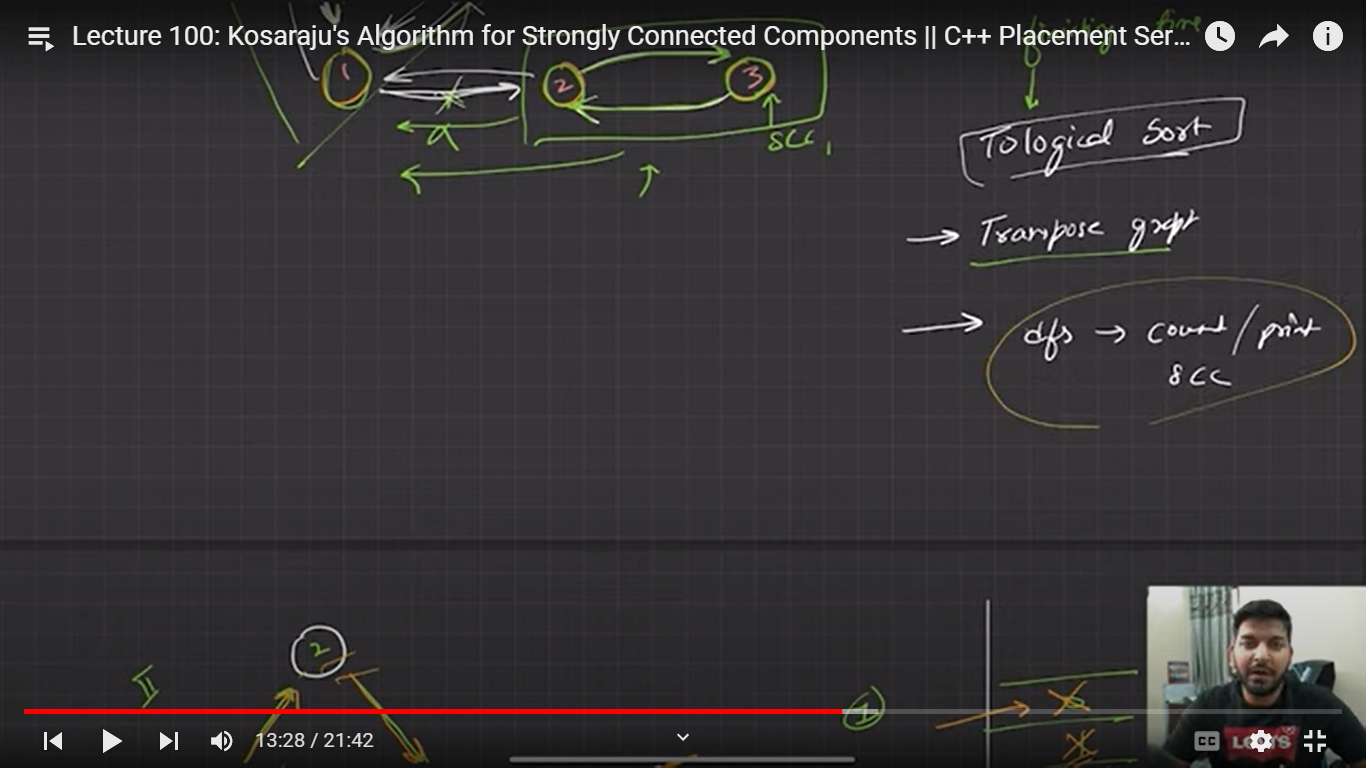 Lecture 100: Kosaraju's Algorithm for Strongly Connected Components || C++ Placement Ser...
time
1
2
3
a
SCC 1
Tological Sort
→ Transpose
→ dfs → count/print
SCC
2
II
1
13:28 / 21:42
CC